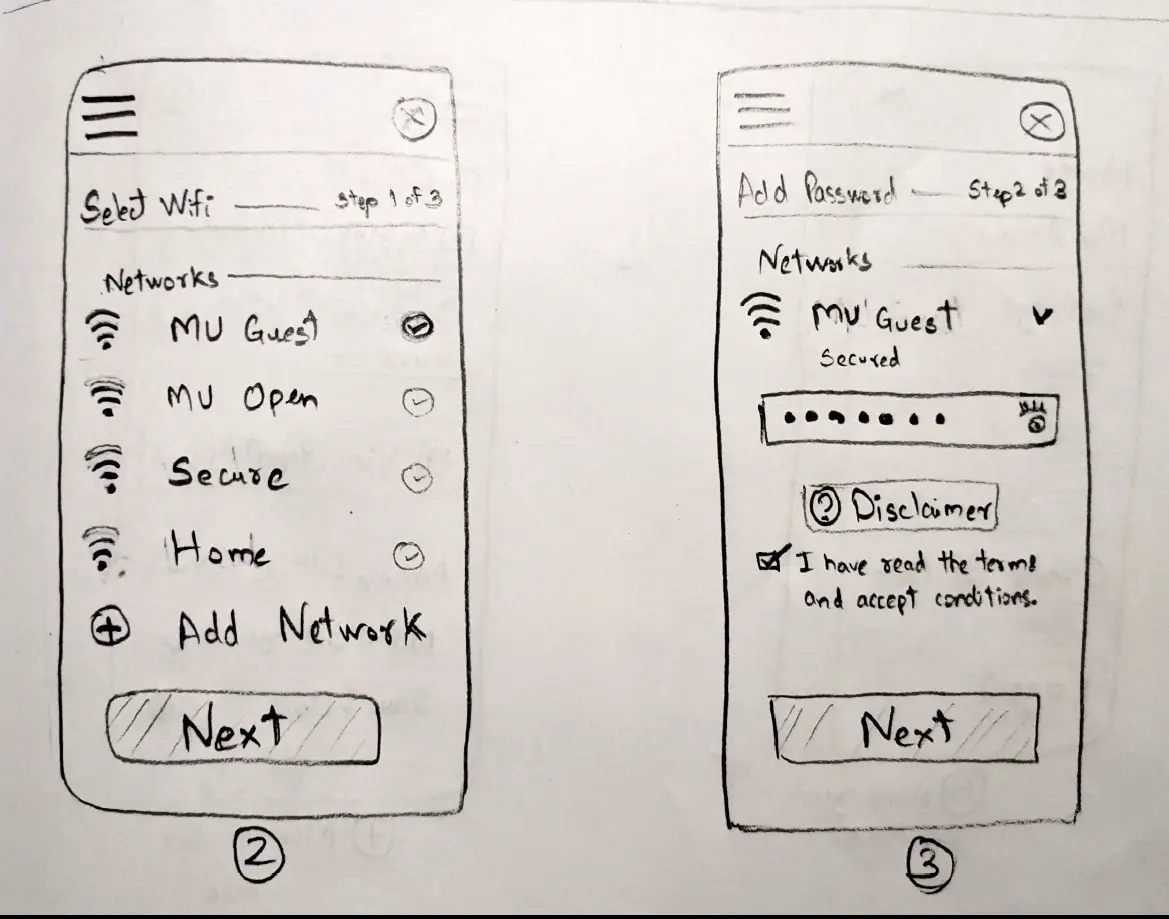 Select Wifi Step 1 of 3
Networks
MU Guest
MU Open
Secure
Home
Add Network
Next
2
Add Password Step 2 of 3
Networks
MU Guest
Secured
? Disclaimer
I have read the terms
and accept conditions.
Next
3